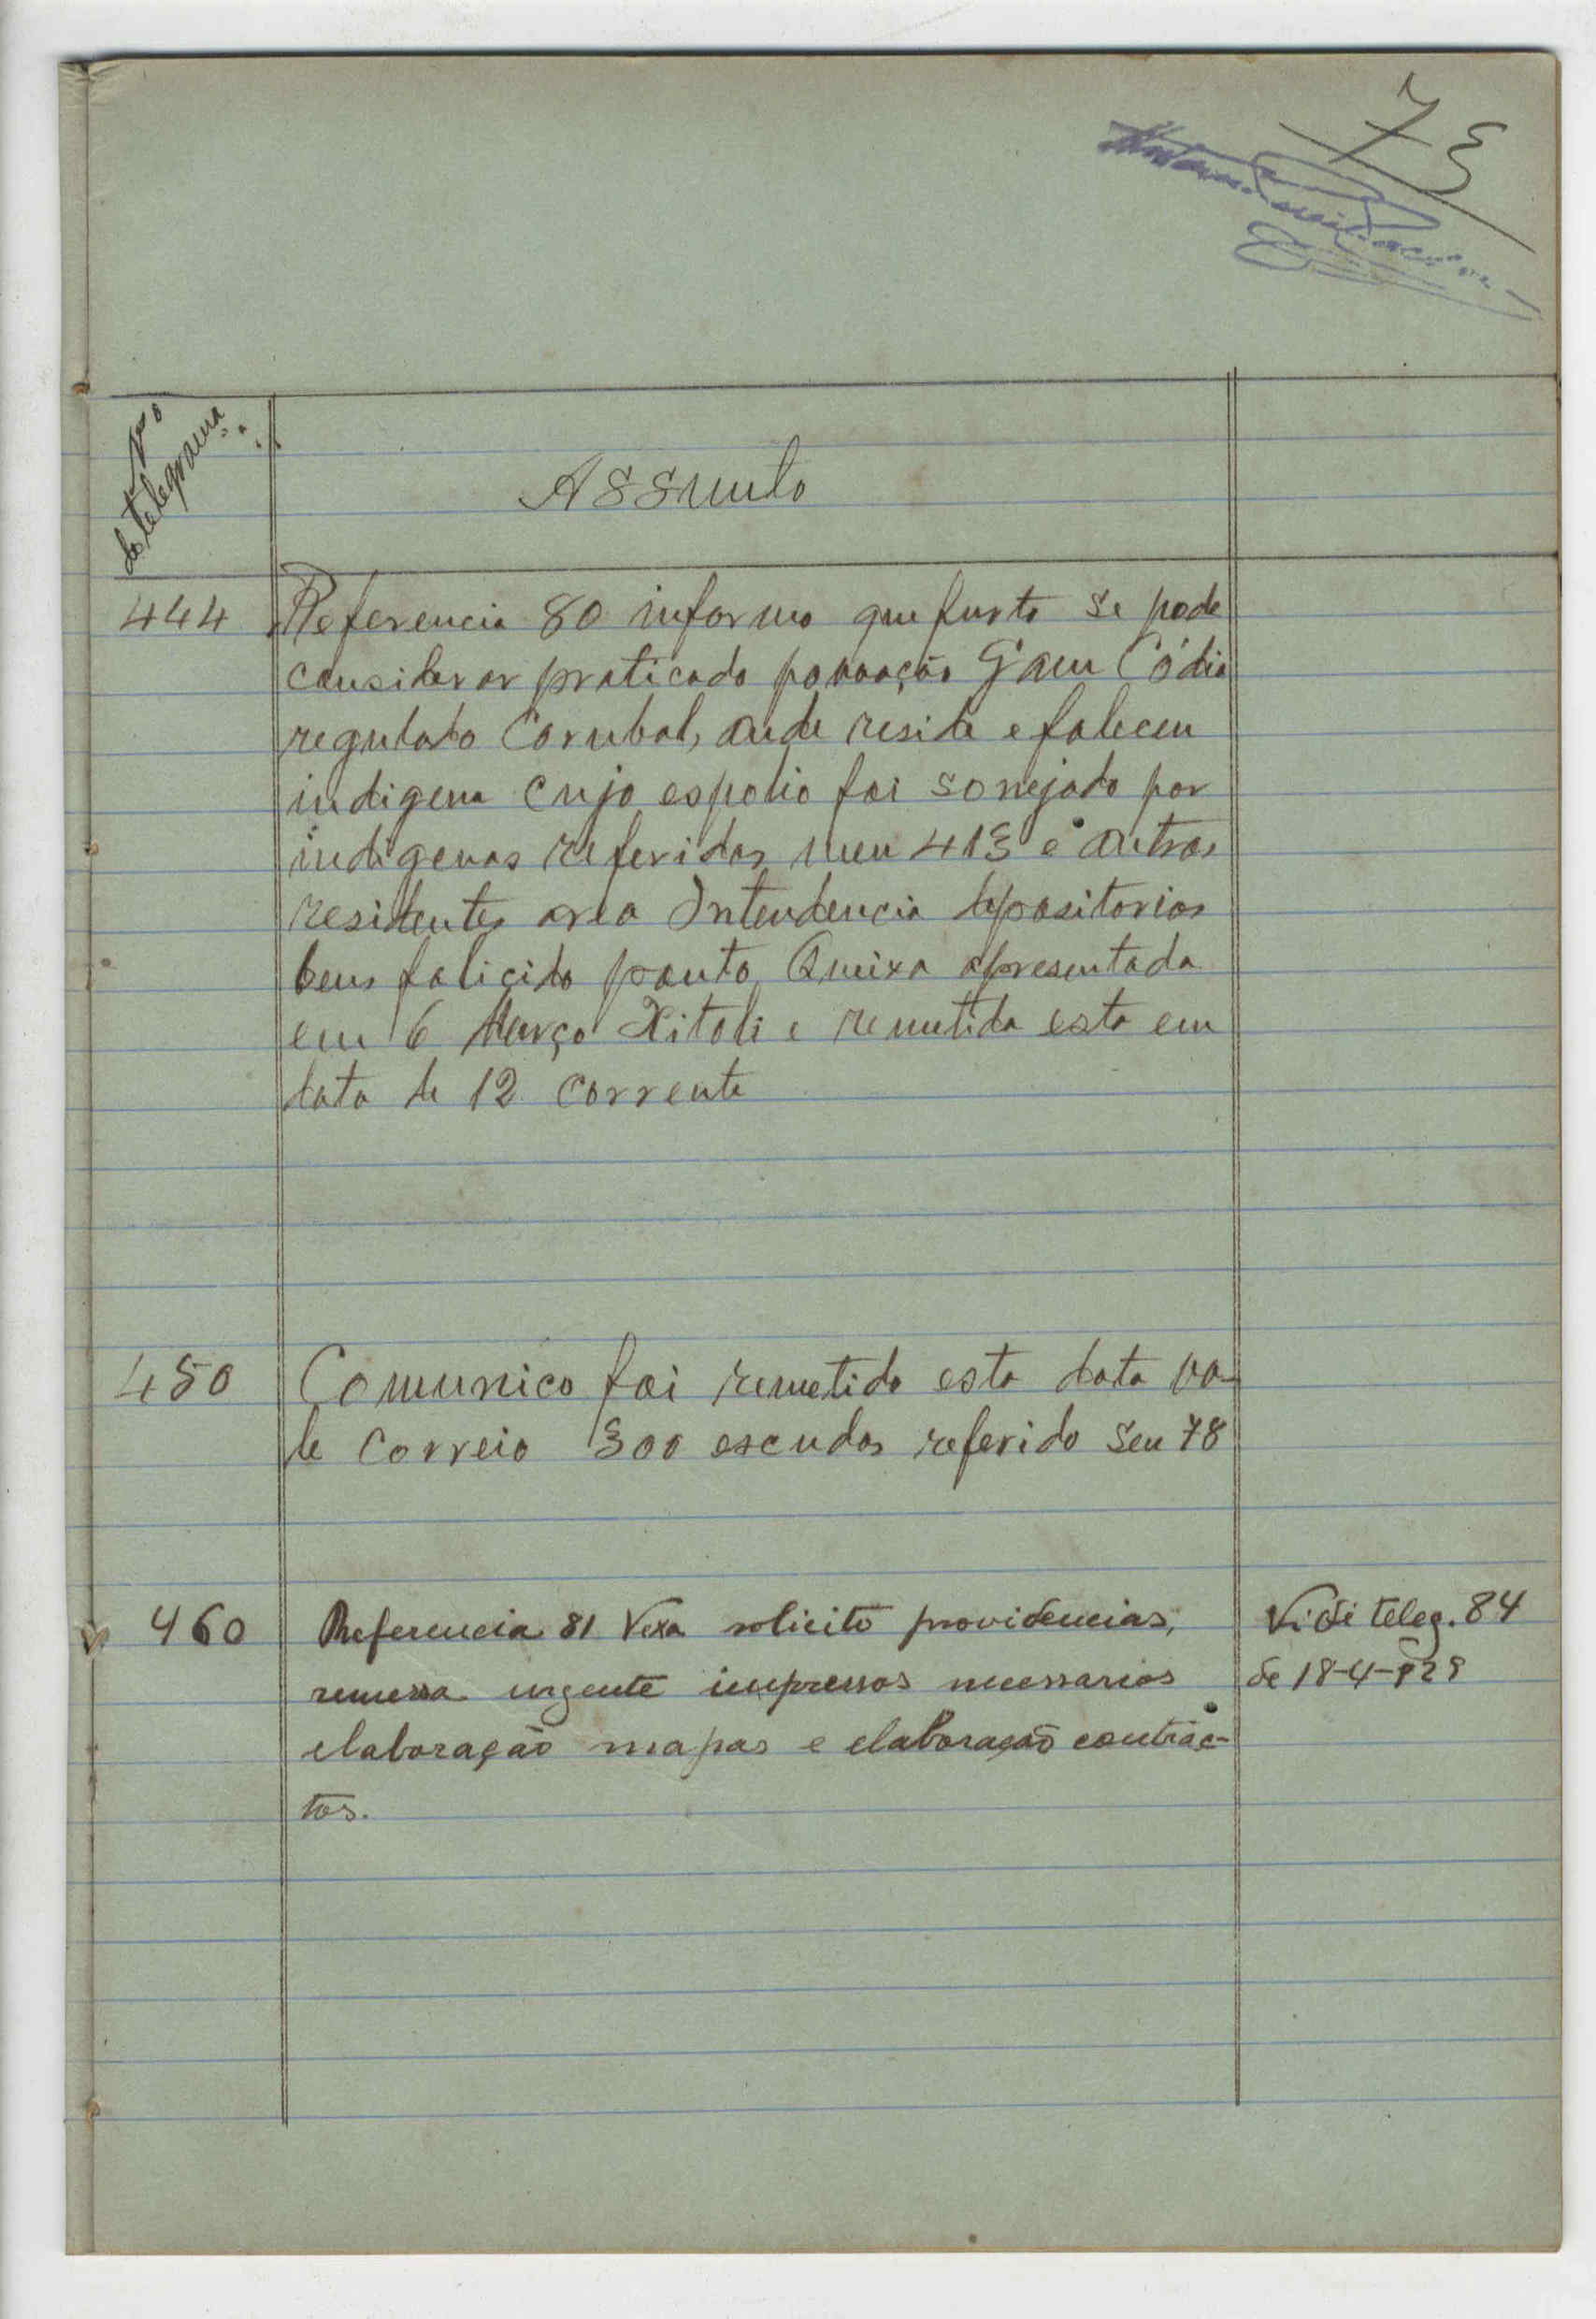 73
Nº
do telegrama
Assunto
444 Referencia 80 informo que furto se pode
considerar praticado povoação Gam Códia
regulado Corubal, onde reside e faleceu
indigena cujo espolio foi sonejado por
indigenas referidos meu 413 e outros
residentes area Intendencia depositarios
bens falicido ponto Queixa apresentada
em 6 Março Xitoli e remetida esta em
data de 12 corrente
450 Comunico foi remetido esta data va-
le correio 300 escudos referido seu 78
460 Referencia 81 Vexa solicito providencias, Vidi teleg. 84
remessa urgente impressos necessarios de 18-4-929
elaboração mapas e elaboração contrac-
tos.